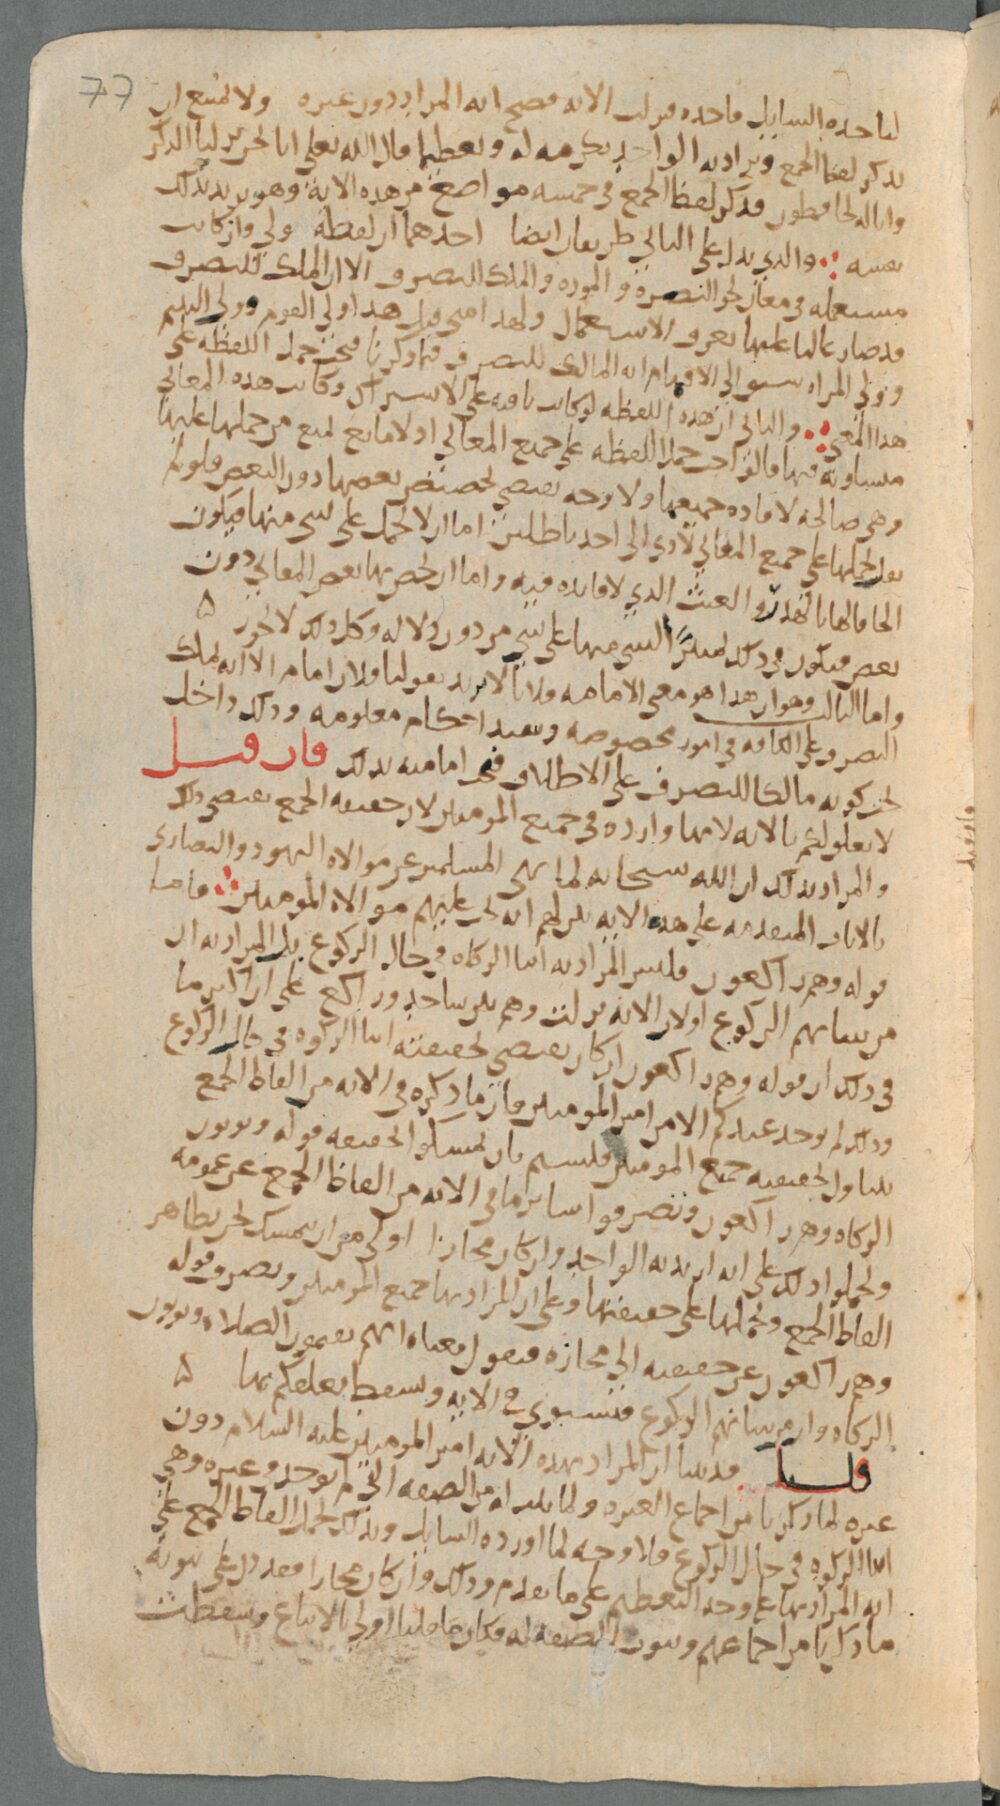 77
لياخذه السايل فاخذه فنزلت الايه فصح انه المراد دون غيره ولا يمتنع ان
يذكر لفظ الجمع ويراد به الواحد تكرمه له وتعظيما قال الله تعلى انا نحن نزلنا الذكر
وانا له لحافظون فذكر لفظ الجمع في خمسه مواضع من هذه الاية وهو يريد بذلك
نفسه والذي يدل على الثاني طريقان ايضا احدهما ان لفظة ولي وان كانت
مستعمله في معان نحو النصره والموده والملك للتصرف الا ان الملك للتصرف
قد صار غالبا عليها بعرف الاستعمال ولهذا متى قيل هذا ولي القوم وولي اليتيم
وولي المراه سبق الى الافهام انه المالك للتصرف فيما ذكرنا فيجب حمل اللفظه على
هذا المعنى والثاني ان هذه اللفظه لو كانت باقيه على الاشتراك وكانت هذه المعاني
متساويه فيها فالواجب حمل اللفظه على جميع المعاني اذ لا مانع يمنع من حملها عليها
وهي صالحه لافاده جميعها ولا وجه يقتضي تخصيص بعضها دون البعض فلو لم
نقل بحملها على جميع المعاني لادى الى احد باطلين اما ان لا تحمل على شي منها فيكون
الحاقا لها بالهذر والعبث الذي لا فايده فيه واما ان يخص بها بعض المعاني دون
بعض فيكون في ذلك تمييز الشي منها على شي من دون دلاله وكل ذلك لا يجوز ه
واما الثالث وهو ان هذا هو معنى الامامه فلانا لا نريد بقولنا فلان امام الا انه يملك
التصرف على الكافه في امور مخصوصه وتنفيذ احكام معلومه وذلك داخل
تحت كونه مالكا للتصرف على الاطلاق فثبتت امامته بذلك فان قيل
لا تعلق لكم بالايه لانها وارده في جميع المومنين لان حقيقه الجمع تقتضي ذلك
والمراد بذلك ان الله سبحانه لما نهى المسلمين عن موالاه اليهود والنصارى
بالايات المتقدمه على هذه الايه بين لهم انه يجب عليهم موالاه المومنين فاما
قوله وهم راكعون فليس المراد به ايتا الزكاه في حال الركوع بل المراد به ان
من شانهم الركوع او لان الايه نزلت وهم بين ساجد وراكع على ان اكثر ما
في ذلك ان قوله وهم راكعون ان كان يقتضي بحقيقته ايتا الزكوه في حال الركوع
وذلك لم يوجد عندكم الا من امير المومنين فان ما ذكره في الايه من الفاظ الجمع
يتناول بحقيقته جميع المومنين فلستم بان تمسكوا بحقيقه قوله ويوتون
الزكاه وهم راكعون وتصرفوا ساير ما في الايه من الفاظ الجمع عن عمومه
وتحملوا ذلك على انه اريد به الواحد وان كان مجازا اولى من ان نتمسك نحن بظاهر
الفاظ الجمع ونحملها على حقيقتها وعلى ان المراد بها جميع المومنين ونصرف قوله
وهم راكعون عن حقيقته الى مجازه فنقول معناه انهم يقيمون الصلاه ويوتون
الزكاه وان من شانهم الركوع فنستوي في الايه ويسقط تعلقكم بها ه
قلنا قد بينا ان المراد بهذه الايه امير المومنين عليه السلام دون
غيره لما ذكرنا من اجماع العتره ولما بيناه من الصفه التي لم توجد في غيره وهي
ايتا الزكوه في حال الركوع فلا وجه لما اورده السايل وبذلك نحمل الفاظ الجمع على
انه المراد بها على وجه التعظيم على ما تقدم وذلك وان كان مجازا فقد دل على ثبوته
ما ذكرنا من اجماعهم وثبوت الصفه له فكان ما قلنا اولى بالاتباع وسقطت